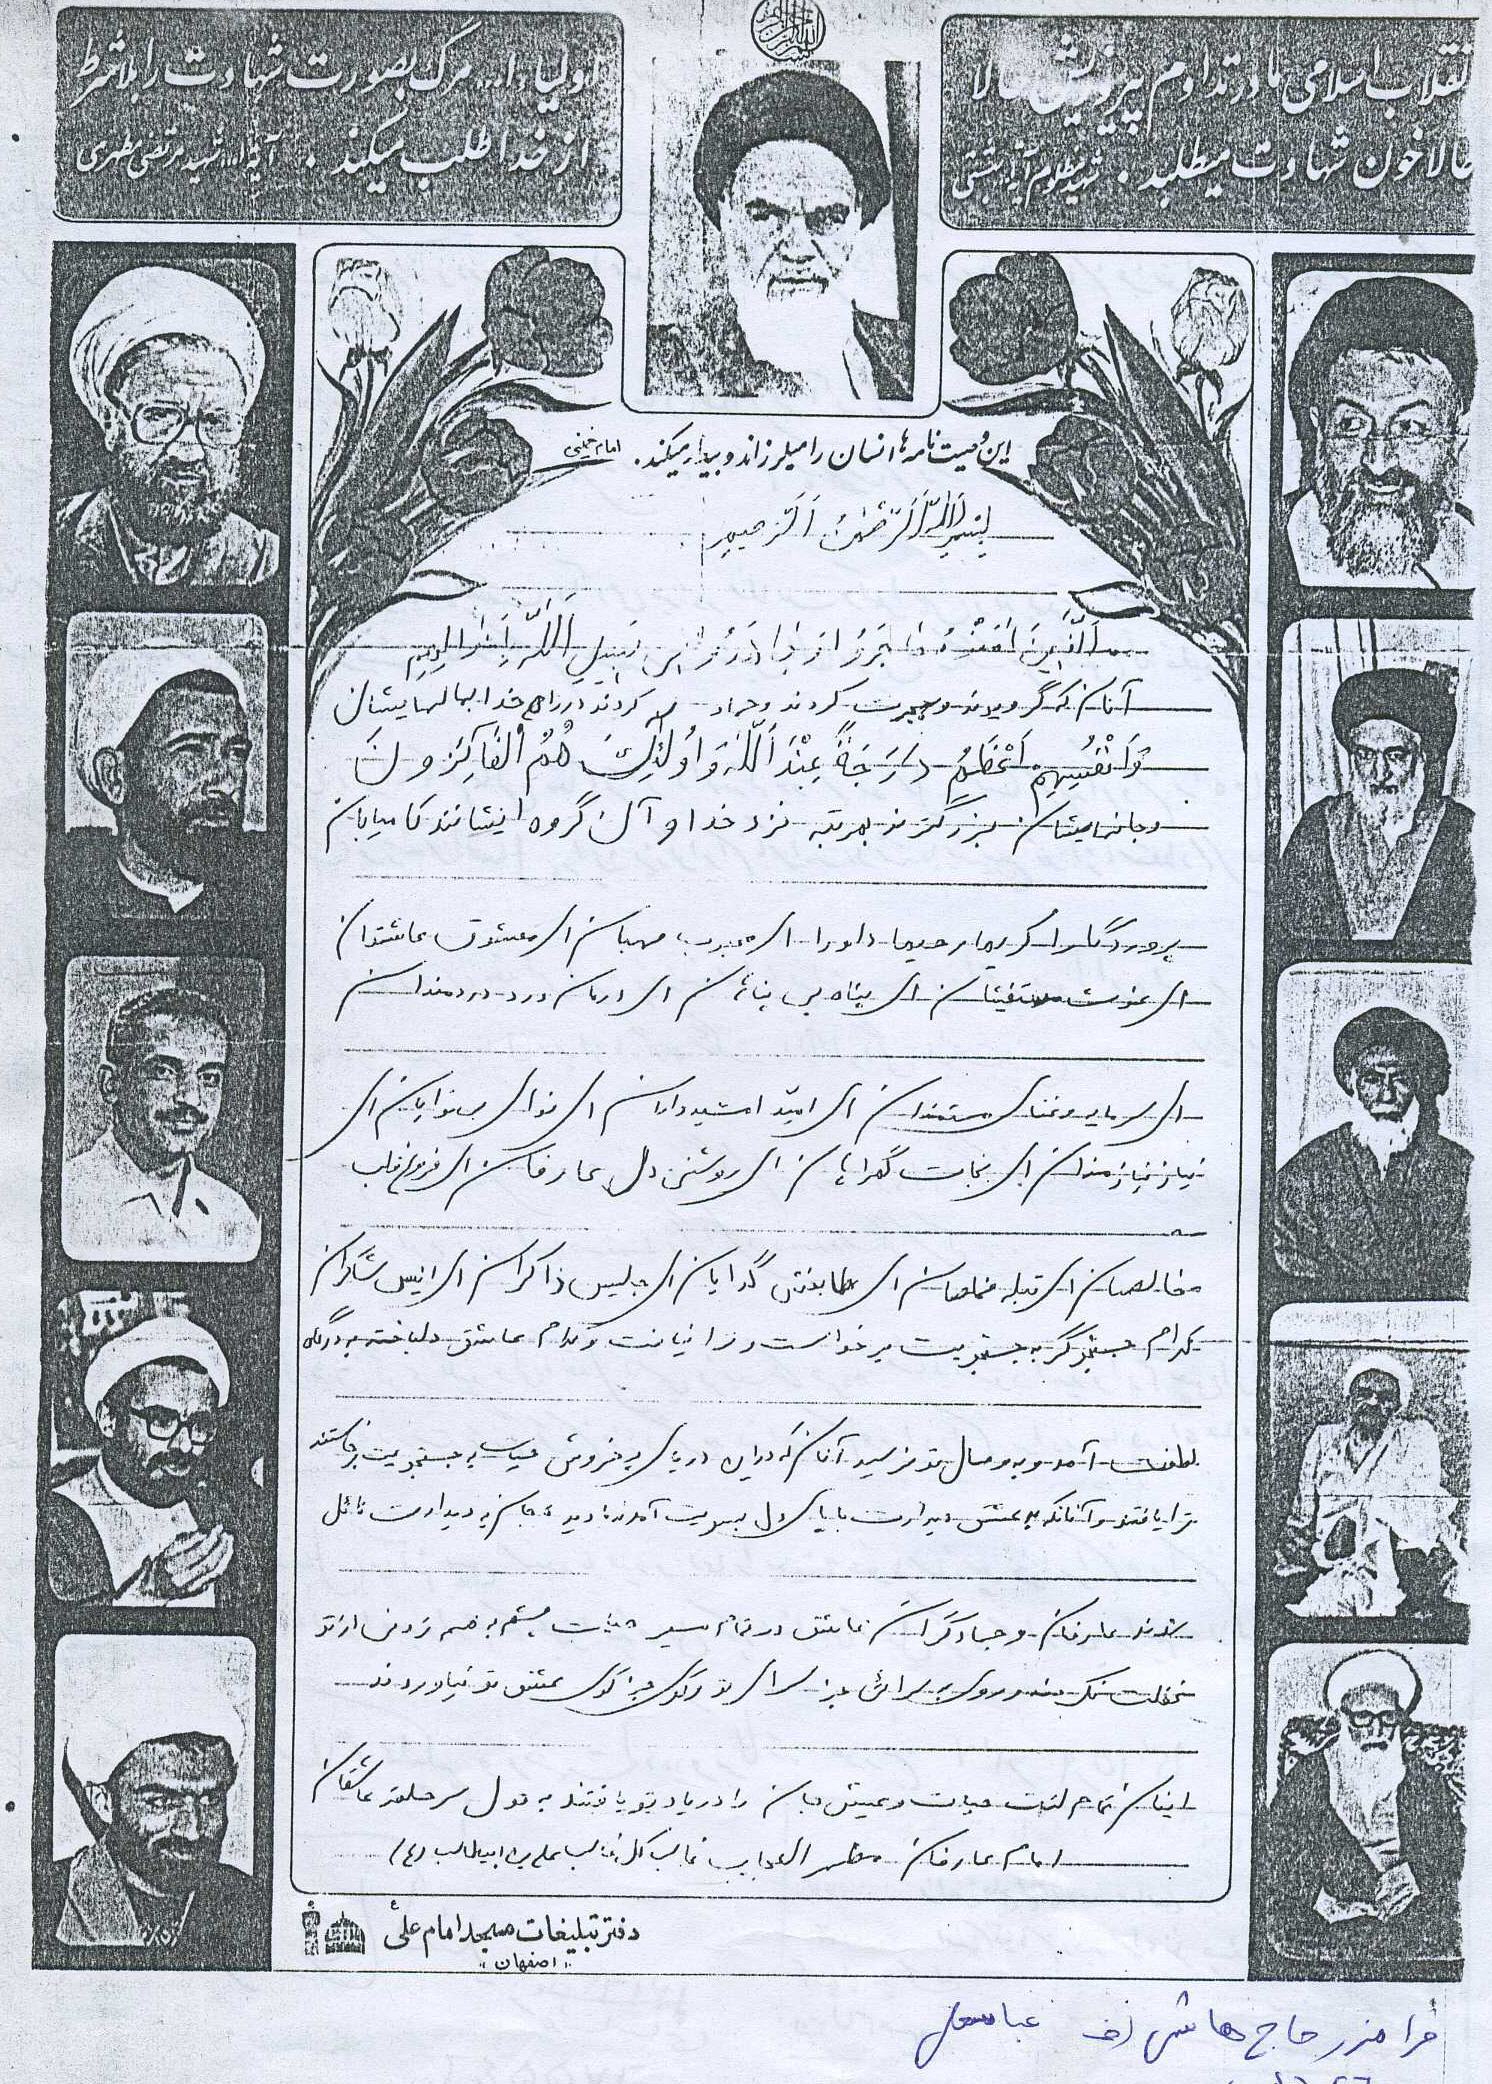 انقلاب اسلامی ما در تداوم پیروزیش حالا
حالا خون شهادت میطلبد. شهید مظلوم آیة... بهشتی
اولیاء ا... مرگ بصورت شهادت را بلاشرط
از خدا طلب میکند. آیة ا... شهید مرتضی مطهری
این وصیت نامه ها انسان را میلرزاند و بیدار میکند. امام خمینی
بسم الله الرحمن الرحیم
الذین آمنوا و هاجروا و جاهدوا فی سبیل الله باموالهم
آنان که گرویدند و هجرت کردند و جهاد کردند در راه خدا بمالهایشان
و انفسهم اعظم درجة عند الله و اولئک هم الفائزون
و جانهایشان بزرگترند بمرتبه نزد خدا و آن گروه ایشانند کامیابان
پروردگارا کریما رحیما داورا ای محبوب مهربان ای معشوق عاشقان
ای غوث مستغیثان ای پناه بی پناهان ای درمان درد دردمندان
ای سرمایه و غنای مستمندان ای امید امیدداران ای نوای بی نوایان ای
نیاز نیازمندان ای نجات گمراهان ای روشنی دل عارفان ای فروغ قلب
خالصان ای قبله مخلصان ای گدایان ای جلیس ذاکران ای انیس شاکران
کدام جستجوگر به جستجویت برخواست و ترا نیافت و کدام عاشق دلباخته به درگاه
لطفت آمد و به وصال تو نرسید آنان که در این دریای پر خروش حیات به جستجویت برخاستند
ترا یافتند و آنانکه به عشق دیدارت با پای دل بسویت آمدند دیده جان به دیدارت نائل
شدند عارفان و عاشق در تمام مسیر حیات چشم به هم زدنی از تو
غفلت نکردند و روی به سرائی جز سرای تو و کوی جز کوی عشق تو نیاوردند
اینان تمام لذت حیات و عیش جان را در یاد تو یافتند به قول سر حلقه عاشقان
امام عارفان مظهر العجایب غالب کل غالب علی بن ابیطالب (ع)
دفتر تبلیغات مسجد امام علی
"اصفهان"
فرامرز حاج هاشمی عباسعلی